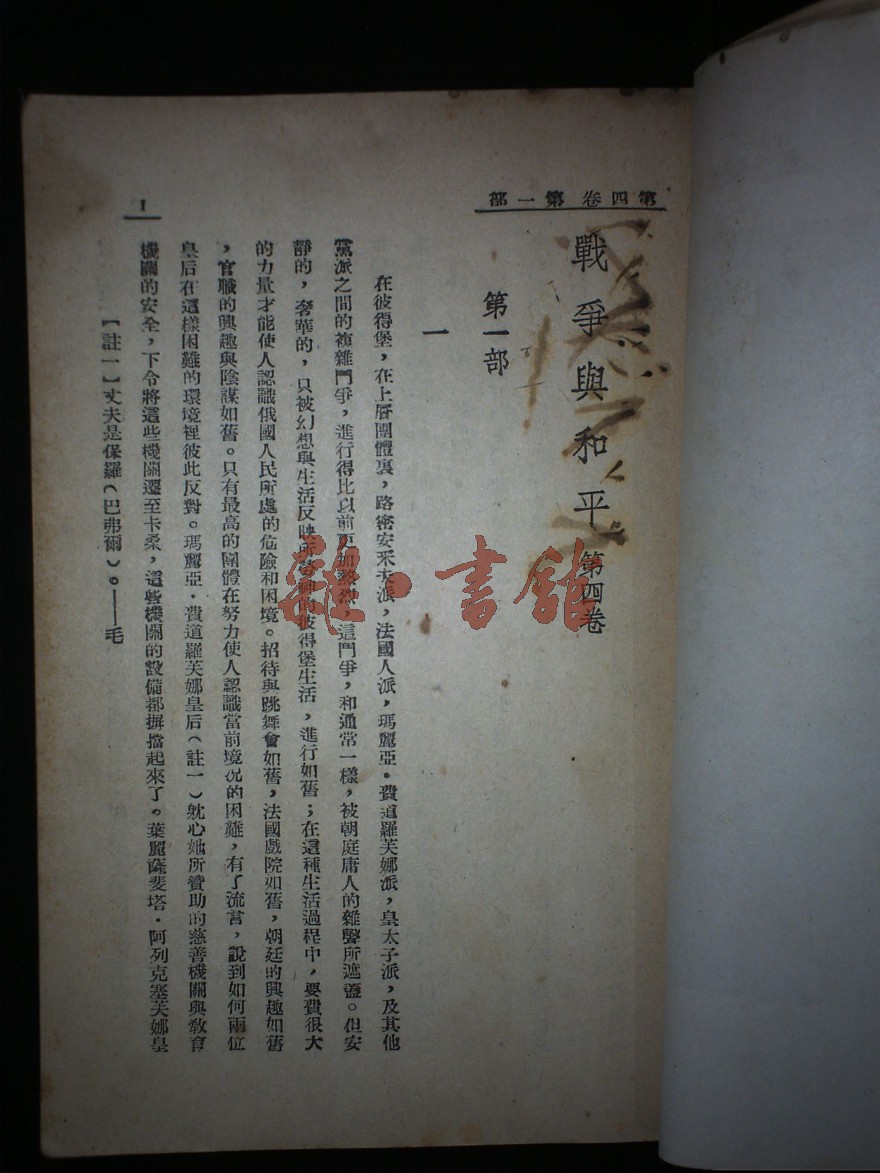 第四卷 第一部
戰爭與和平 第四卷
第一部
一
在彼得堡，在上層團體裏，路密安采夫派，法國人派，瑪麗亞·費道羅芙娜派，皇太子派，及其他
黨派之間的複雜鬥爭，進行得比以前更加熱烈，這鬥爭，和通常一樣，被朝庭庸人的雜聲所遮蓋。但安
靜的，奢華的，只被幻想與生活反映所勞神的彼得堡生活，進行如舊；在這種生活過程中，要費很大
的力量才能使人認識俄國人民所處的危險和困境。招待與跳舞會如舊，法國戲院如舊，朝廷的興趣如舊
，官職的興趣與陰謀如舊。只有最高的團體在努力使人認識當前境況的困難，有了流言，說到如何兩位
皇后在這樣困難的環境裡彼此反對。瑪麗亞·費道羅芙娜皇后（註一）躭心她所贊助的慈善機關與教育
機關的安全，下令將這些機關遷至卡桑，這些機關的設備都摒擋起來了。葉麗薩斐塔·阿列克塞芙娜皇
【註一】丈夫是保羅（巴弗爾）。——毛
1
雜·書館